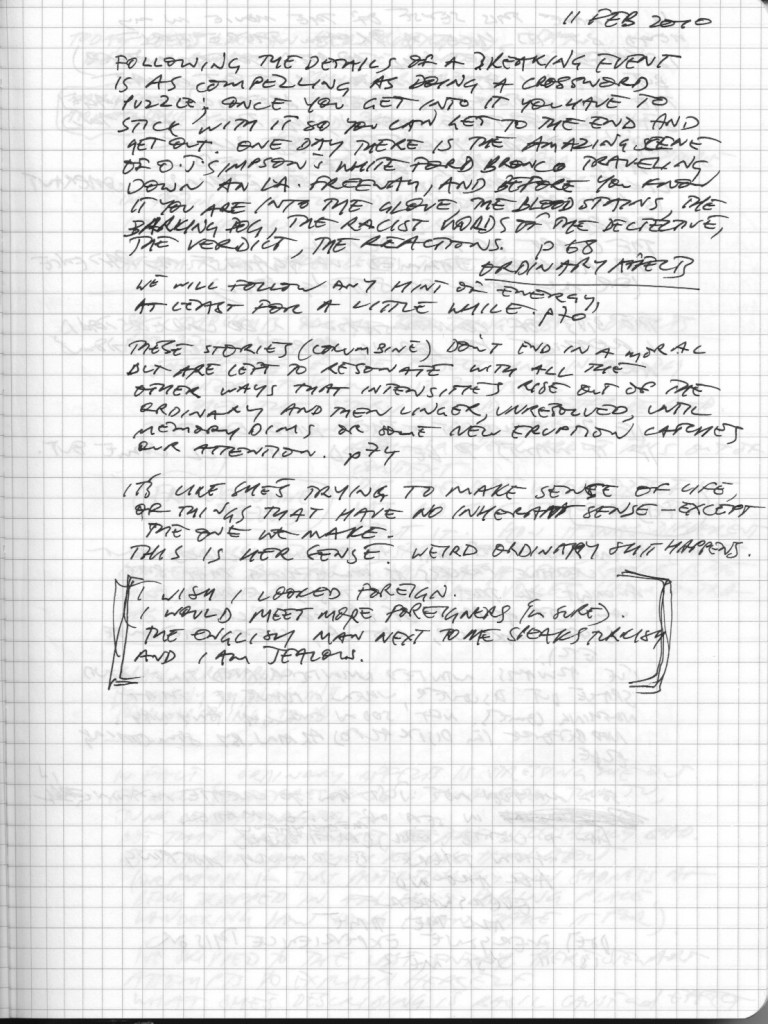 11 FEB 2010
FOLLOWING THE DETAILS OF A BREAKING EVENT
IS AS COMPELLING AS DOING A CROSSWORD
PUZZLE; ONCE YOU GET INTO IT YOU HAVE TO
STICK WITH IT SO YOU CAN GET TO THE END AND
GET OUT. ONE DAY THERE IS THE AMAZING SCENE
OF O.J. SIMPSON'S WHITE FORD BRONCO TRAVELING
DOWN AN LA. FREEWAY, AND BEFORE YOU KNOW
IT YOU ARE INTO THE GLOVE, THE BLOOD STAINS, THE
BARKING DOG, THE RACIST WORDS OF THE DECTECTIVE,
THE VERDICT, THE REACTIONS. p 68
ORDINARY AFFECTS
WE WILL FOLLOW ANY HINT OF ENERGY,
AT LEAST FOR A LITTLE WHILE. p70
THESE STORIES (COLUMBINE) DON'T END IN A MORAL
BUT ARE LEFT TO RESONATE WITH ALL THE
OTHER WAYS THAT INTENSITIES RISE OUT OF THE
ORDINARY AND THEN LINGER, UNRESOLVED, UNTIL
MEMORY DIMS OR SOME NEW ERUPTION CATCHES
OUR ATTENTION. p74
IT'S LIKE SHE'S TRYING TO MAKE SENSE OF LIFE,
OR THINGS THAT HAVE NO INHERANT SENSE - EXCEPT
THE ONE WE MAKE.
THIS IS HER SENSE. WEIRD ORDINARY SHIT HAPPENS.
I WISH I LOOKED FOREIGN.
I WOULD MEET MORE FOREIGNERS (I'M SURE).
THE ENGLISH MAN NEXT TO ME SPEAKS TURKISH
AND I AM JEALOUS.